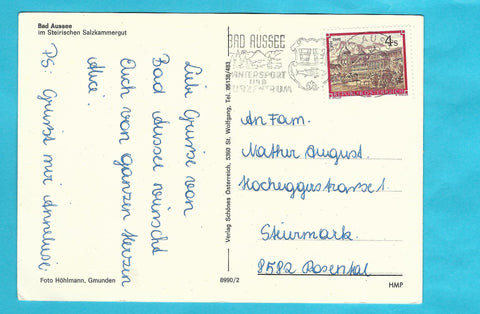 Bad Aussee
im Steirischen Salzkammergut
Liebe Grüsse von
Bad Aussee wünscht
Euch von ganzen Herzen
PS: Grüsst mir Anneliese.
Foto Höhlmann, Gmunden
8990/2
Verlag Schönes Österreich, 5360 St. Wolfgang, Tel. 06138/493
BAD AUSSEE
WINTERSPORT
UND
KURZENTRUM
4 S
REPUBLIK ÖSTERREICH
An Fam.
Mather August.
Hocheggerstrasse 1.
Steiermark.
8582 Rosental
HMP